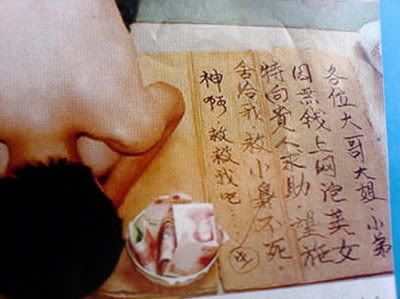 各位大哥大姐小弟
因無錢上网泡美女
特向貴人求助.望施
舍给我.救小弟不死.
神啊放殺我吧...